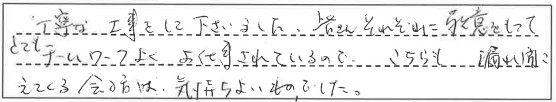 丁寧な工事をして下さいました。皆さんそれぞれに敬意をもって
とてもチームワークよくお仕事されているので、こちらも漏れ聞こ
えてくる会話は、気持ちよいものでした。